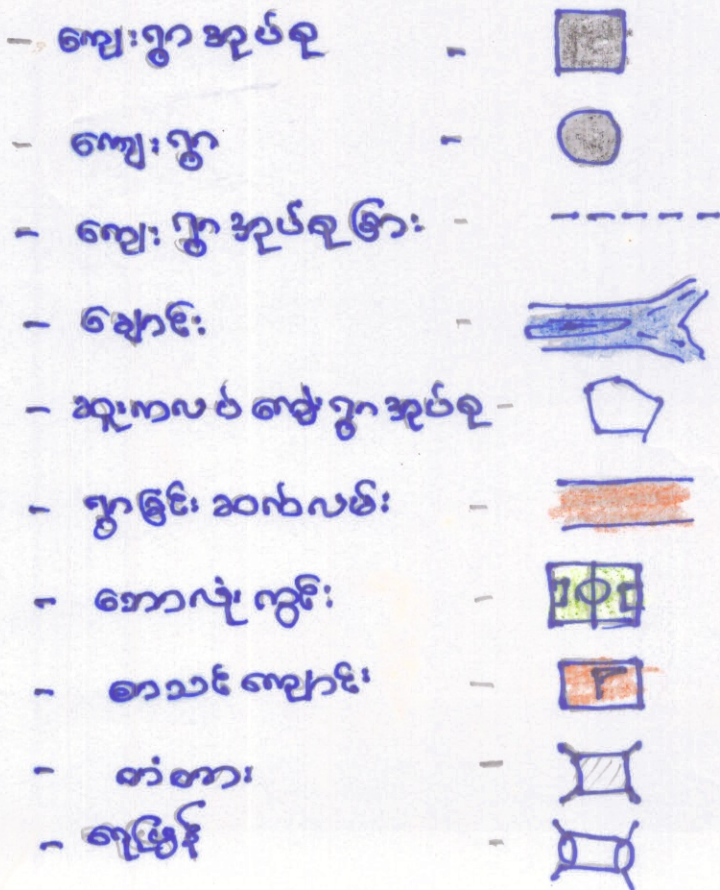 - ကျေးရွာအုပ်စု -
- ကျေးရွာ -
- ကျေးရွာအုပ်စုခြား -
- ချောင်း -
- ဆူးကလပ် ကျေးရွာအုပ်စု -
- ရွာခြင်း ဆက်လမ်း -
- ဘောလုံးကွင်း -
- စာသင်ကျောင်း -
- တံတား -
- ရေပြွန် -